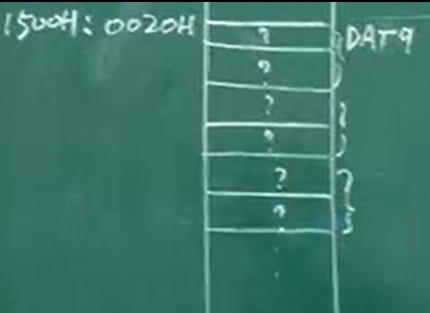 1500H:0020H
?
DAT9
?
?
?
?
?